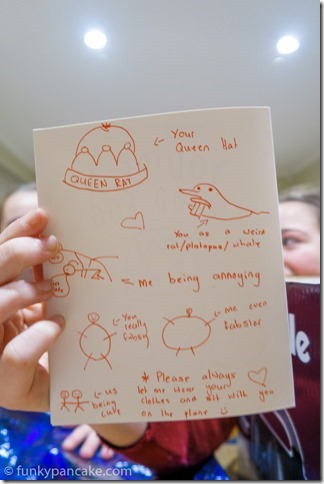 Your
Queen Hat
QUEEN RAT
You as a weird
rat/platapus/whale
me being annoying
You
really
fabby
me even
fabbier
us
being
cute
* Please always
let me wear your
clothes and sit with you
on the plane
© funkypancake.com